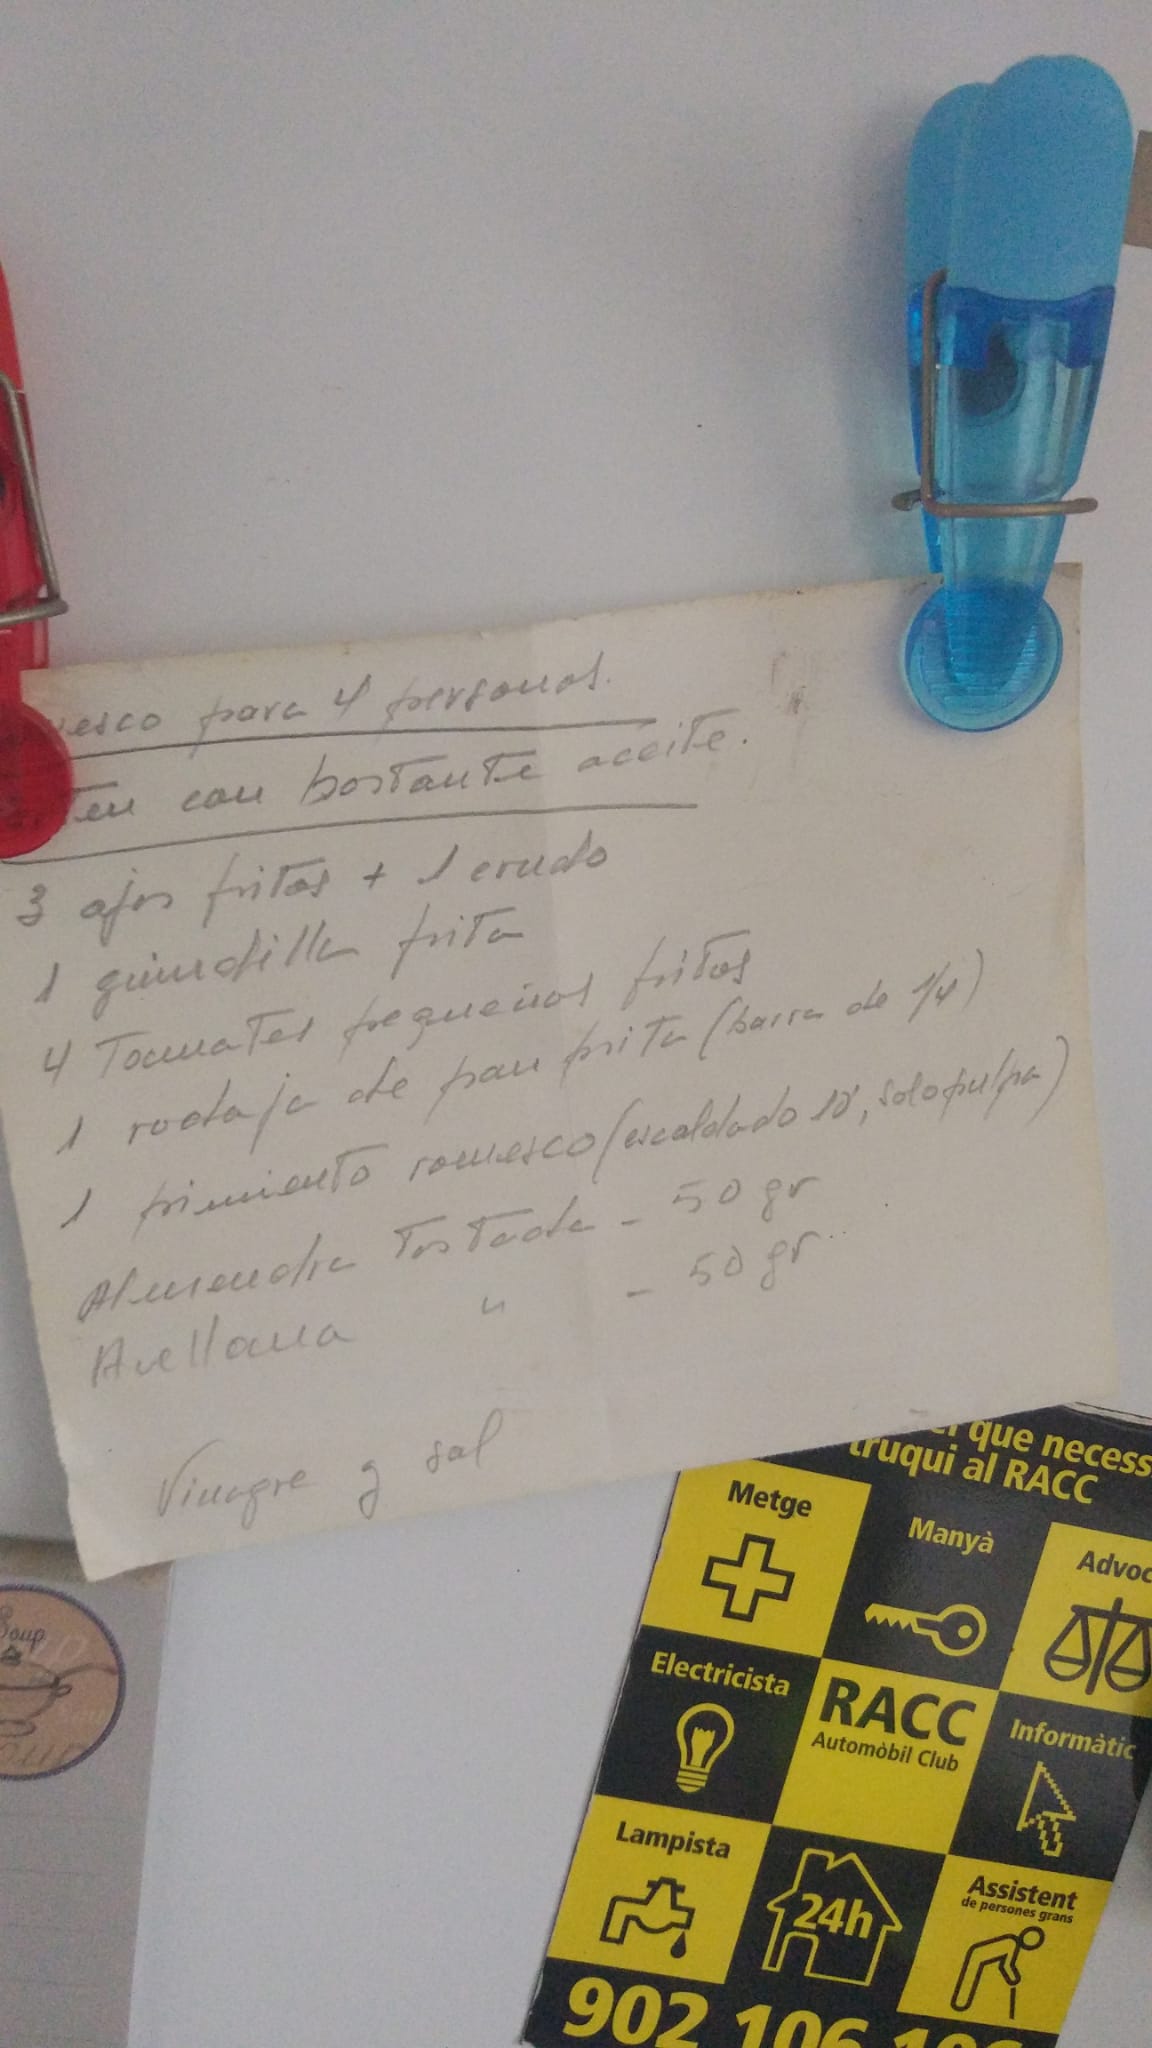 esco para 4 personas.
ten con bastante aceite.
3 ajos fritos + 1 crudo
1 guindilla frita
4 Tomates pequeños fritos
1 rodaja de pan frita (barra de 1/4)
1 pimiento romesco (escaldado 10', solo pulpa)
Almendra Tostada - 50 gr
Avellana " - 50 gr.
Vinagre y sal
que necess
truqui al RACC
Metge
Manyà
Advoc
Electricista
RACC
Automòbil Club
Informàtic
Lampista
24h
Assistent
de persones grans
902 106 106
Soup